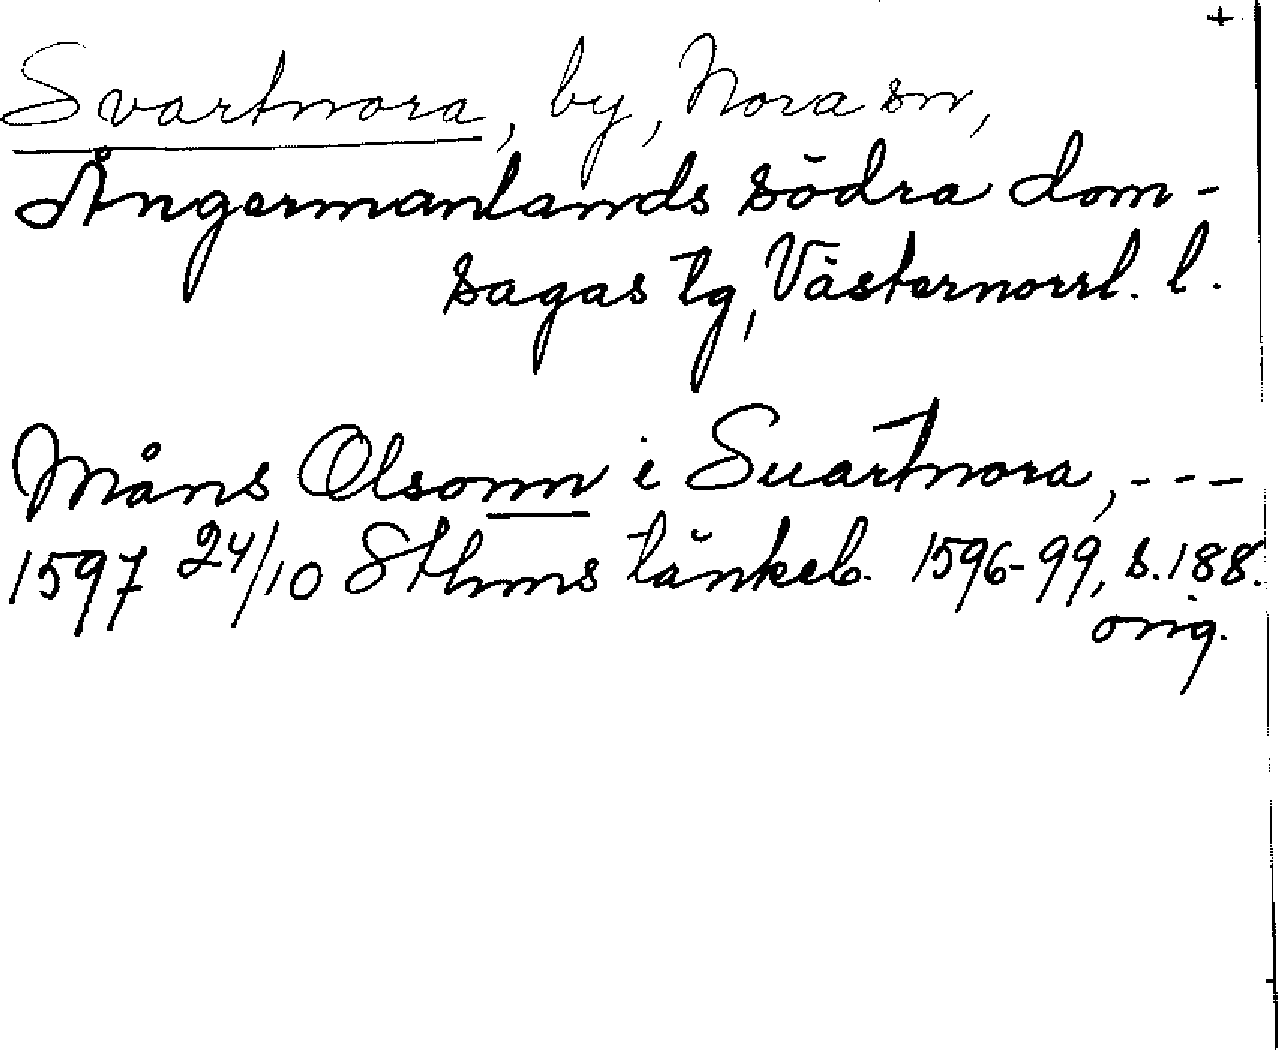 +
Svartnora, by, Nora sn,
Ångermanlands södra dom-
sagas tg, Västernorrl. l.
Måns Olsonn i Suartnora, ---
1597 24/10 Sthms tänkeb. 1596-99, s. 188.
orig.